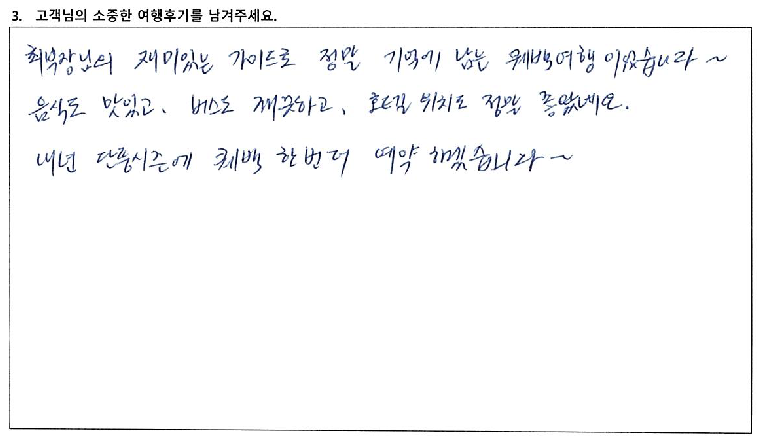 3. 고객님의 소중한 여행후기를 남겨주세요.
최부장님의 재미있는 가이드로 정말 기억에 남는 퀘백여행이었습니다~
음식도 맛있고, 버스도 깨끗하고, 호텔 위치도 정말 좋았네요.
내년 단풍시즌에 퀘백 한번더 예약 하겠습니다~